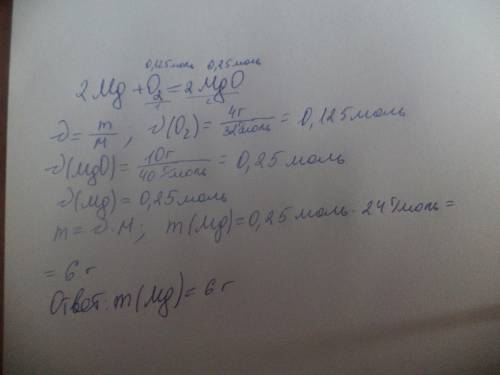 0,125моль 0,25моль
2Mg + O₂ = 2MgO
1 2
ν = m/M ; ν(O₂) = 4г/32г/моль = 0,125моль
ν(MgO) = 10г/40г/моль = 0,25моль
ν(Mg) = 0,25моль
m = ν·M ; m(Mg) = 0,25моль · 24г/моль =
= 6 г
Ответ: m(Mg) = 6 г